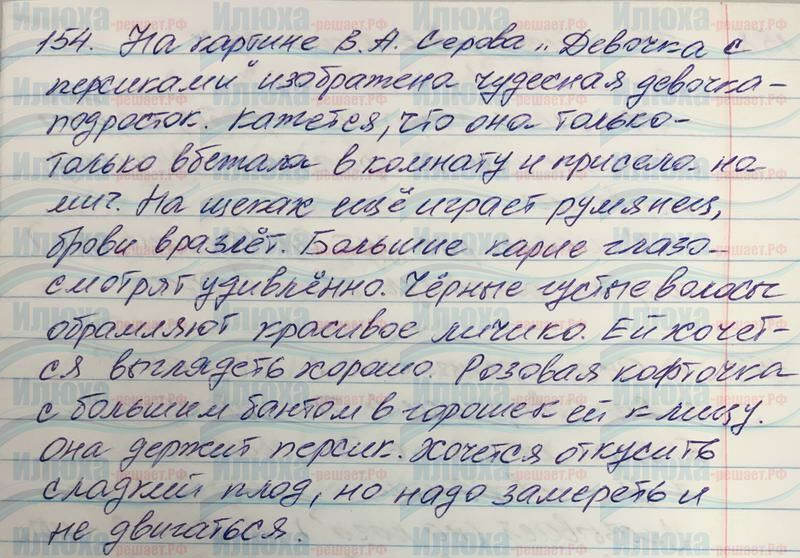 154. На картине В. А. Серова „Девочка с
персиками" изображена чудесная девочка-
подросток. Кажется, что она только-
только вбежала в комнату и присела на
миг. На щеках ещё играет румянец,
брови вразлёт. Большие карие глаза
смотрят удивлённо. Чёрные густые волосы
обрамляют красивое личико. Ей хочет-
ся выглядеть хорошо. Розовая кофточка
с большим бантом в горошек ей к лицу.
Она держит персик. Хочется откусить
сладкий плод, но надо замереть и
не двигаться.
Илюха-решает.РФ